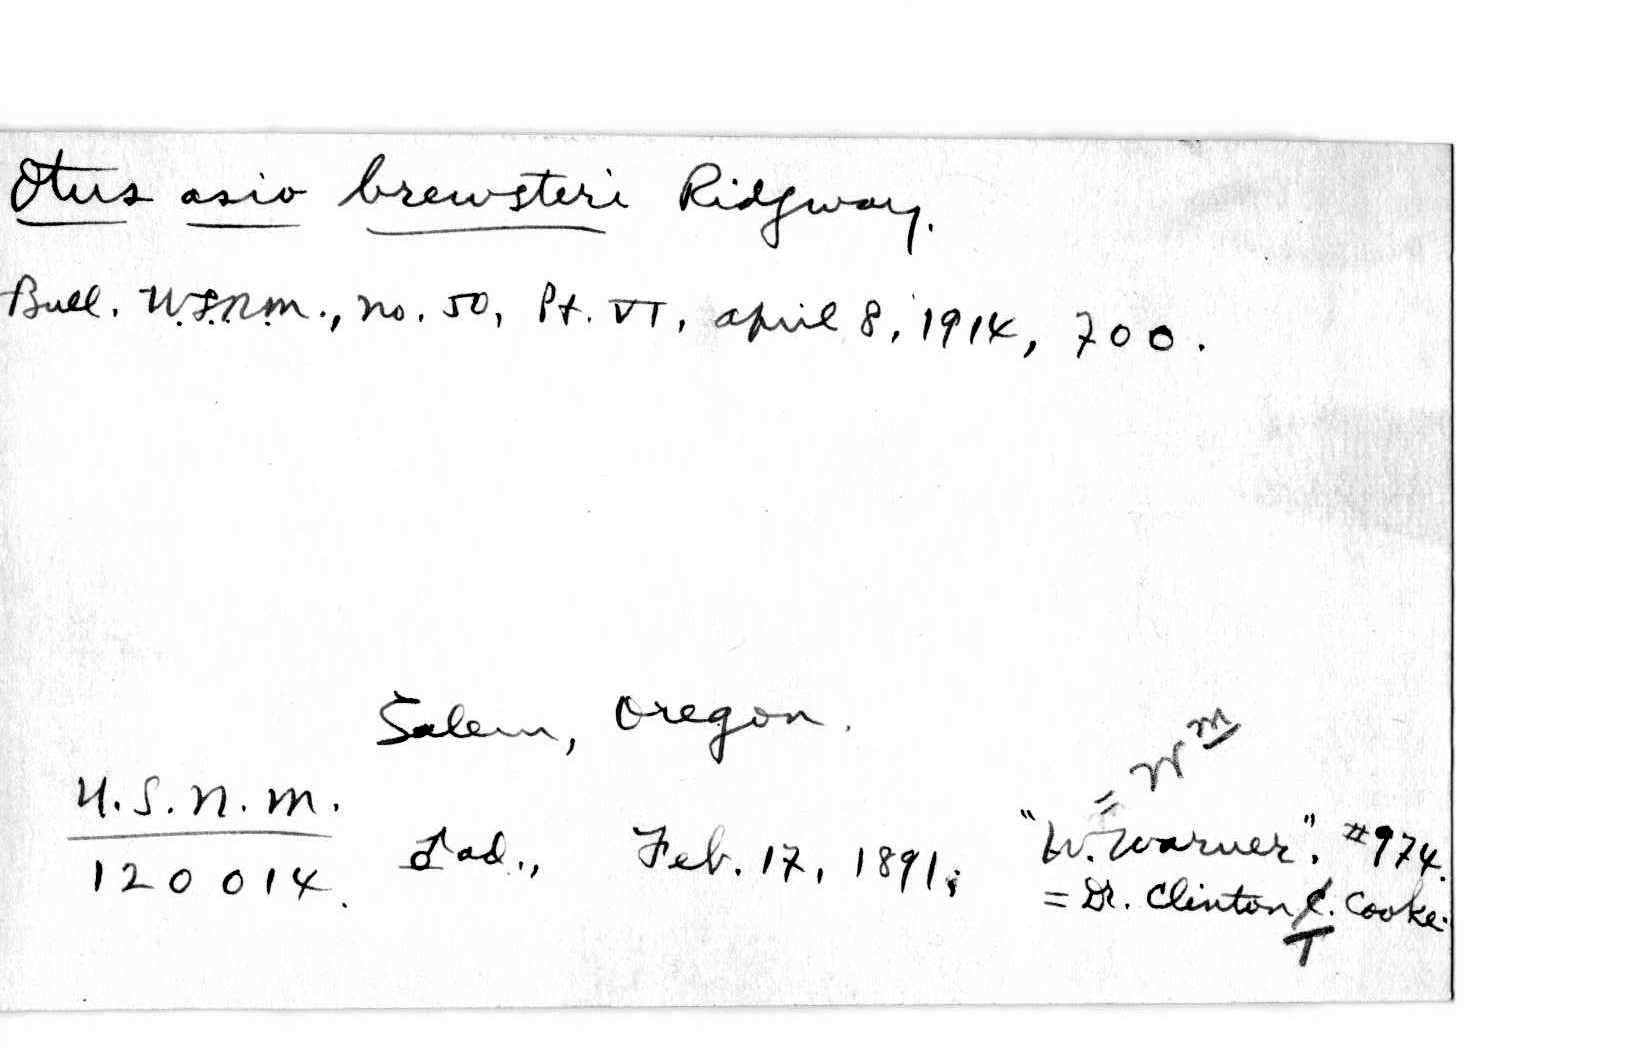 Otus asio brewsteri Ridgway.
Bull. U.S.N.M., no. 50, Pt. VI, april 8, 1914, 700.
Salem, Oregon.
= Wm
U.S.N.M.
120014.
♂ ad., Feb. 17, 1891; "W. Warner". #974.
= Dr. Clinton C. Cooke.
T